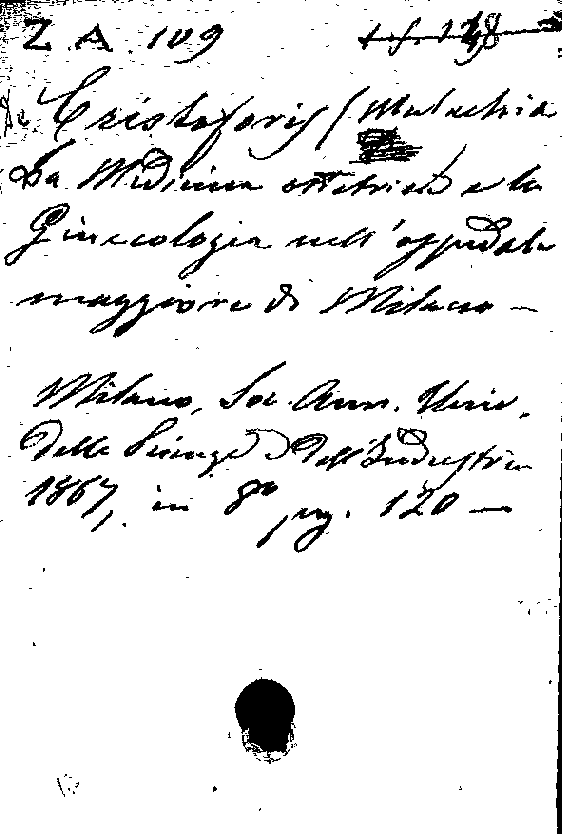 Z. A. 109
De Cristoforis / Malachia
La Medicina ostetricia e la
Ginecologia nell'ospedale
maggiore di Milano —
Milano, Soc. Ann. Univ.
delle Scienze e dell'Industria
1867, in 8° pag. 120 —